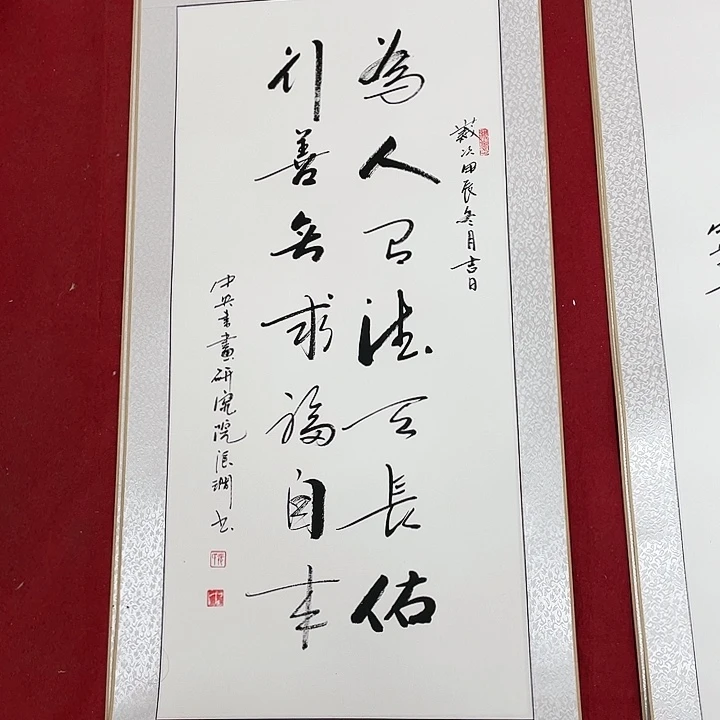 歲次甲辰冬月吉日
為人有德天長佑
行善無求福自來
中央書畫研究院張潤书